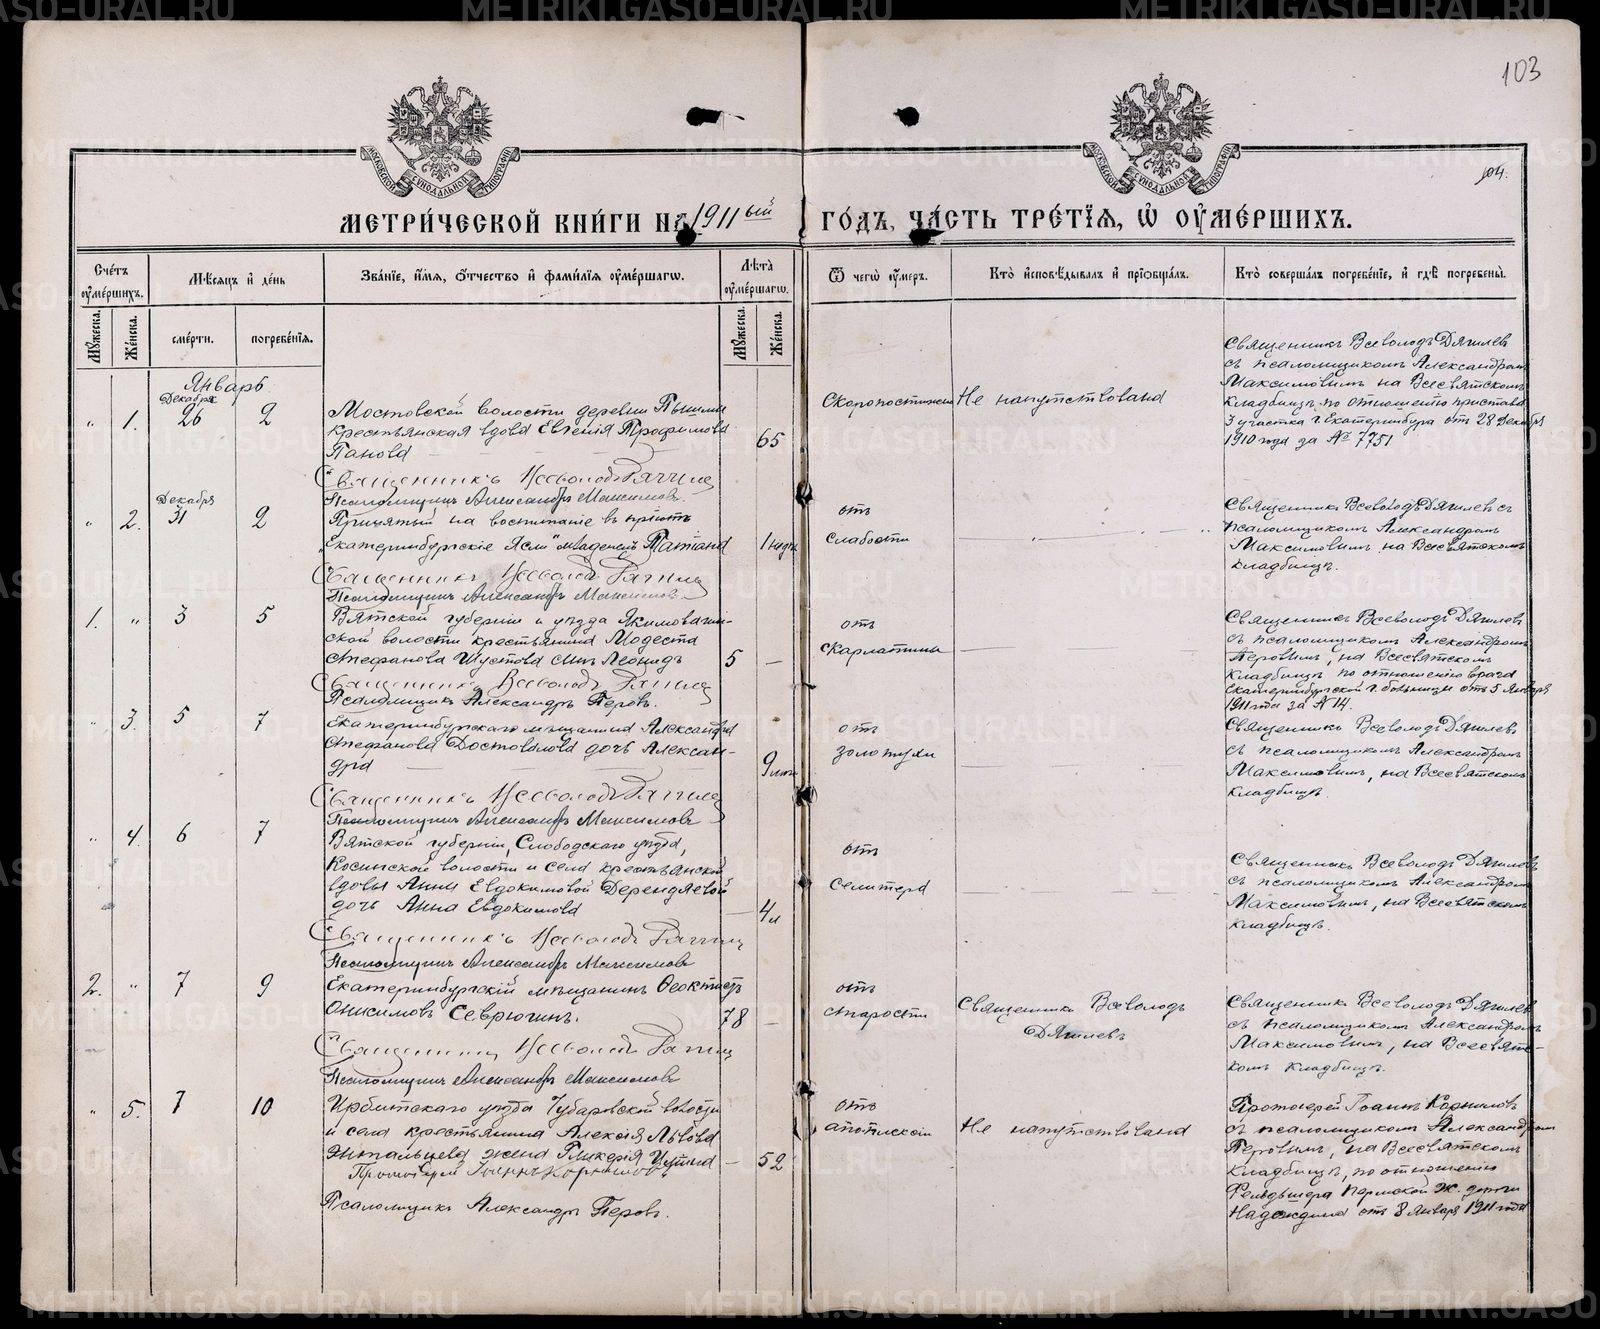 103
104.
МОСКОВСКОЙ СѴНОДАЛЬНОЙ ТИПОГРАФІИ
МОСКОВСКОЙ СѴНОДАЛЬНОЙ ТИПОГРАФІИ
МЕТРИ́ЧЕСКОЙ КНИ́ГИ НА 1911ый ГО́ДЪ, ЧА́СТЬ ТРЕ́ТІѦ, Ѡ҆ ОУ҆МЕ́РШИХЪ.
Сче́тъ оу҆ме́ршихъ.
Мѣ́сѧцъ и҆ де́нь
Зва́нїе, и҆́мѧ, ѻ҆́тчество и҆ фами́лїѧ оу҆ме́ршагѡ.
Лѣ́та оу҆ме́ршагѡ.
Ѿ чегѡ̀ оу҆́меръ.
Кто̀ и҆сповѣ́дывалъ и҆ прїѡбща́лъ.
Кто̀ соверша́лъ погребе́нїе, и҆ гдѣ̀ погребены̀.
Мꙋ́жеска.
Же́нска.
сме́рти.
погребе́нїѧ.
Мꙋ́жеска.
Же́нска.
Январь
Декабря
" 1. 26 2
Мостовской волости деревни Пышмы
крестьянская вдова Евгенія Трофимова
Панова
65
Скоропостижно
Не напутствована
Священникъ Всеволодъ Дягилев
съ псаломщикомъ Александром
Максимовымъ на Всесвятском
кладбищѣ по отношенію пристава
3 участка г. Екатеринбурга отъ 28 Декабря
1910 года за № 7751
Священникъ Всеволодъ Дягилев
Псаломщикъ Александръ Максимовъ.
Декабря
" 2. 31 2
Принятый на воспитаніе въ пріютъ
"Екатеринбургскіе Ясли" младенецъ Татіана
1 нед.
отъ
слабости
Священникъ Всеволодъ Дягилев съ
псаломщикомъ Александромъ
Максимовымъ на Всесвятскомъ
кладбищѣ.
Священникъ Всеволодъ Дягилев
Псаломщикъ Александръ Максимовъ.
1. " 3 5
Вятской губерніи и уѣзда Якимовагин-
ской волости крестьянина Модеста
Стефанова Шустова сынъ Леонидъ
5 —
отъ
скарлатины
Священникъ Всеволодъ Дягилев
съ псаломщикомъ Александромъ
Перовымъ, на Всесвятском
кладбищѣ по отношенію врача
Екатеринбургской г. больницы отъ 5 Января
1911 года за № 14.
Священникъ Всеволодъ Дягилев
Псаломщикъ Александръ Перовъ.
" 3. 5 7
Екатеринбургскаго мѣщанина Александра
Стефанова Достовалова дочь Алексан-
дра
9 мѣс
отъ
золотухи
Священникъ Всеволодъ Дягилевъ
съ псаломщикомъ Александромъ
Максимовымъ, на Всесвятском
кладбищѣ.
Священникъ Всеволодъ Дягилев
Псаломщикъ Александръ Максимовъ
" 4. 6 7
Вятской губерніи, Слободского уѣзда,
Косинской волости и села крестьянской
вдовы Анны Евдокимовой Дерендяевой
дочь Анна Евдокимова
— 4 м
отъ
селитера
Священникъ Всеволодъ Дягилевъ
съ псаломщикомъ Александром
Максимовымъ, на Всесвятском
кладбищѣ.
Священникъ Всеволодъ Дягилев
Псаломщикъ Александръ Максимовъ
2. " 7 9
Екатеринбургскій мѣщанинъ Ѳеоктистъ
Онисимовъ Севрюгинъ.
78 —
отъ
старости
Священникъ Всеволодъ
Дягилевъ
Священникъ Всеволодъ Дягилев
съ псаломщикомъ Александромъ
Максимовымъ, на Всесвятс-
комъ кладбищѣ.
Священникъ Всеволодъ Дягилев
Псаломщикъ Александръ Максимовъ
" 5. 7 10
Ирбитскаго уѣзда Чубаровской волости
и села крестьянина Алексія Львова
жена Гликерія
— 52
отъ
апоплексіи
Не напутствована
Протоіерей Іоаннъ Корниловъ
съ псаломщикомъ Александром
Перовымъ, на Всесвятскомъ
кладбищѣ, по отношенію
Фельдшера Пермской ж. дороги
Надеждина отъ 8 Января 1911 года
Протоіерей Іоаннъ Корниловъ.
Псаломщикъ Александръ Перовъ.
METRIKI.GASO-URAL.RU